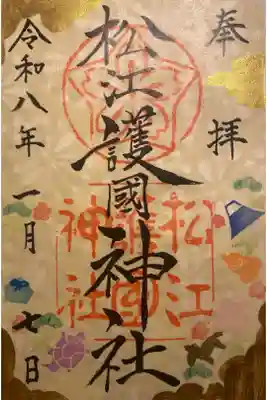 奉拝
松江護國神社
松江
護國
神社
令和八年 一月 七日